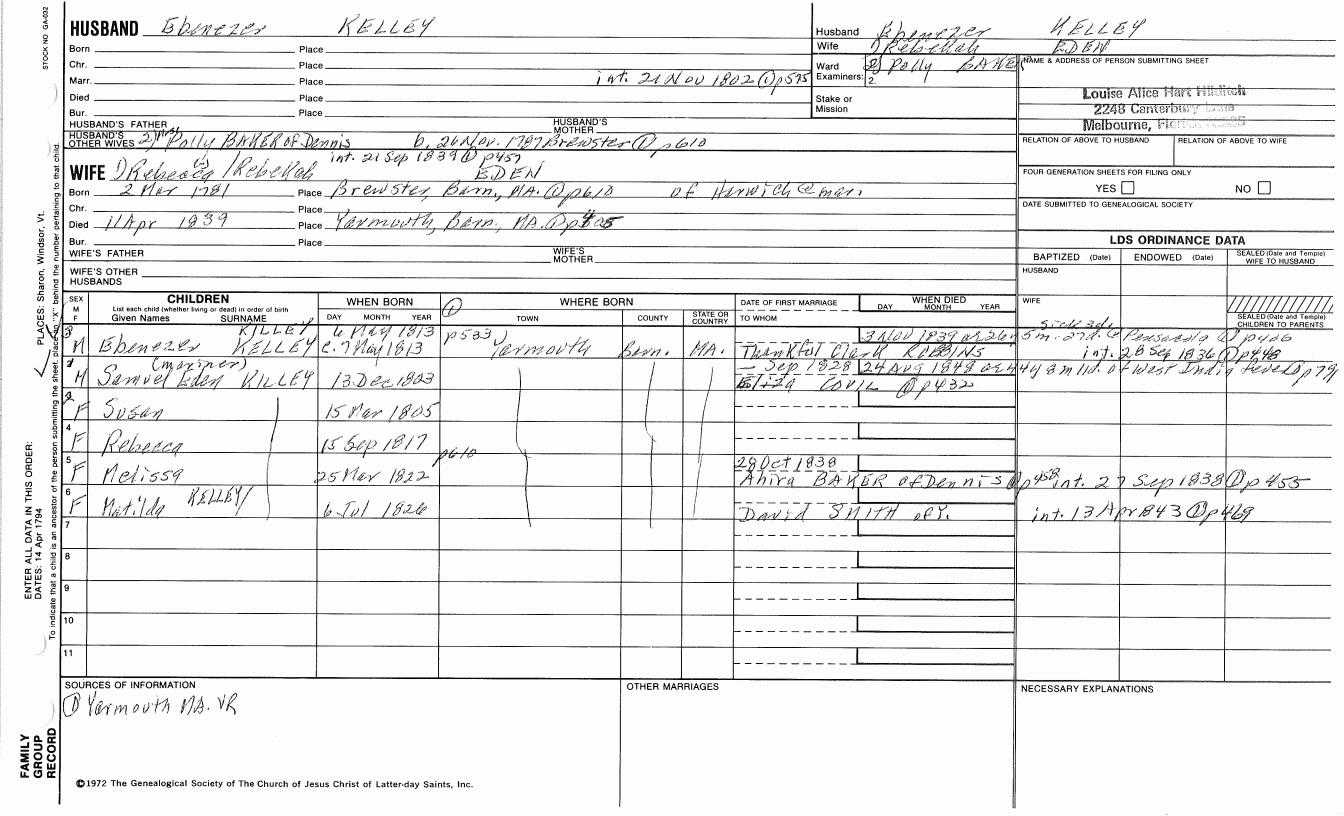 STOCK NO GA-032
HUSBAND Ebenezer KELLEY
Born Place
Chr. Place
Marr. Place int. 21 Nov 1802 ① p575
Died Place
Bur. Place
HUSBAND'S FATHER HUSBAND'S MOTHER
HUSBAND'S OTHER WIVES 2) Mrs. Polly BAKER of Dennis b. 26 Nov. 1787 Brewster ① p610
int. 21 Sep 1839 ① p457
WIFE 1) Rebecca /Rebekah EDEN
Born 2 Mar 1781 Place Brewster, Barn., MA. ① p610 of Harwich @ mar.
Chr. Place
Died 11 Apr 1839 Place Yarmouth, Barn., MA. ①
Bur. Place
WIFE'S FATHER WIFE'S MOTHER
WIFE'S OTHER HUSBANDS
Husband Ebenezer KELLEY
Wife 1) Rebekah EDEN
Ward 2) Polly BAKER
Examiners: 2.
Stake or Mission
NAME & ADDRESS OF PERSON SUBMITTING SHEET
Louise Alice Hart
2248 Canterbury Lane
Melbourne,
RELATION OF ABOVE TO HUSBAND RELATION OF ABOVE TO WIFE
FOUR GENERATION SHEETS FOR FILING ONLY
YES NO
DATE SUBMITTED TO GENEALOGICAL SOCIETY
LDS ORDINANCE DATA
BAPTIZED (Date) ENDOWED (Date) SEALED (Date and Temple) WIFE TO HUSBAND
HUSBAND
WIFE
SEALED (Date and Temple) CHILDREN TO PARENTS
SEX M F CHILDREN WHEN BORN ① WHERE BORN DATE OF FIRST MARRIAGE WHEN DIED
List each child (whether living or dead) in order of birth
Given Names SURNAME DAY MONTH YEAR TOWN COUNTY STATE OR COUNTRY TO WHOM DAY MONTH YEAR
KILLEY 6 May 1813 p533 3 Nov 1839 ae 26y 5m. 27d. @ Pensacola ① p426
3 M Ebenezer KELLEY c. 7 May 1813 Yarmouth Barn. MA. Thankful Clark ROBBINS int. 28 Sep 1836 ① p448
(mariner) – Sep 1828 24 Aug 1848 ae 44y 8m 11d. of West India fever ①
1 M Samuel Eden KILLEY 13 Dec 1803 Eliza COVIL ① p432
2 F Susan 15 Mar 1805
4 F Rebecca 15 Sep 1817
p610
5 F Melissa 25 Mar 1822 28 Oct 1838 Ahira BAKER of Dennis ① p458 int. 27 Sep 1838 ① p455
6 F Matilda KELLEY/ 6 Jul 1826 David SMITH of Y. int. 13 Apr 1843 ① p469
7
8
9
10
11
SOURCES OF INFORMATION OTHER MARRIAGES NECESSARY EXPLANATIONS
① Yarmouth MA. VR
©1972 The Genealogical Society of The Church of Jesus Christ of Latter-day Saints, Inc.
FAMILY GROUP RECORD
ENTER ALL DATA IN THIS ORDER:
DATES: 14 Apr 1794
PLACES: Sharon, Windsor, Vt.
To indicate that a child is an ancestor of the person submitting the sheet place an "X" behind the number pertaining to that child